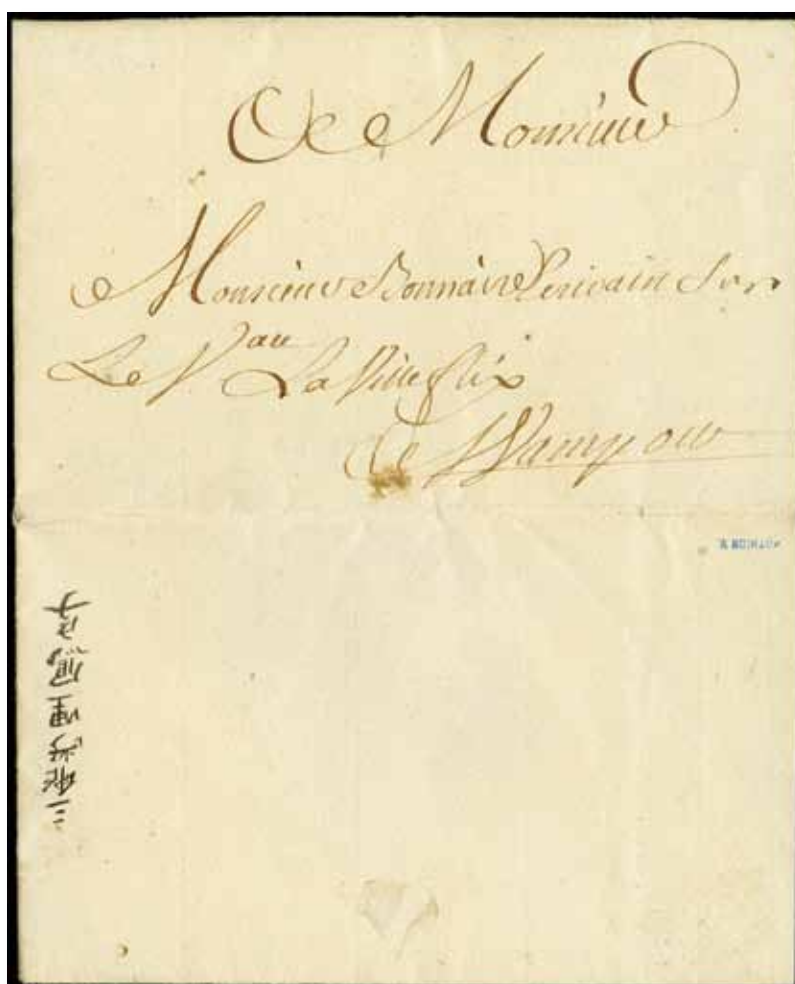 A Monsieur
Monsieur Bonnaire Ecrivain Sur
Le V.au La Ville flix
A Wampou
POTHION W.